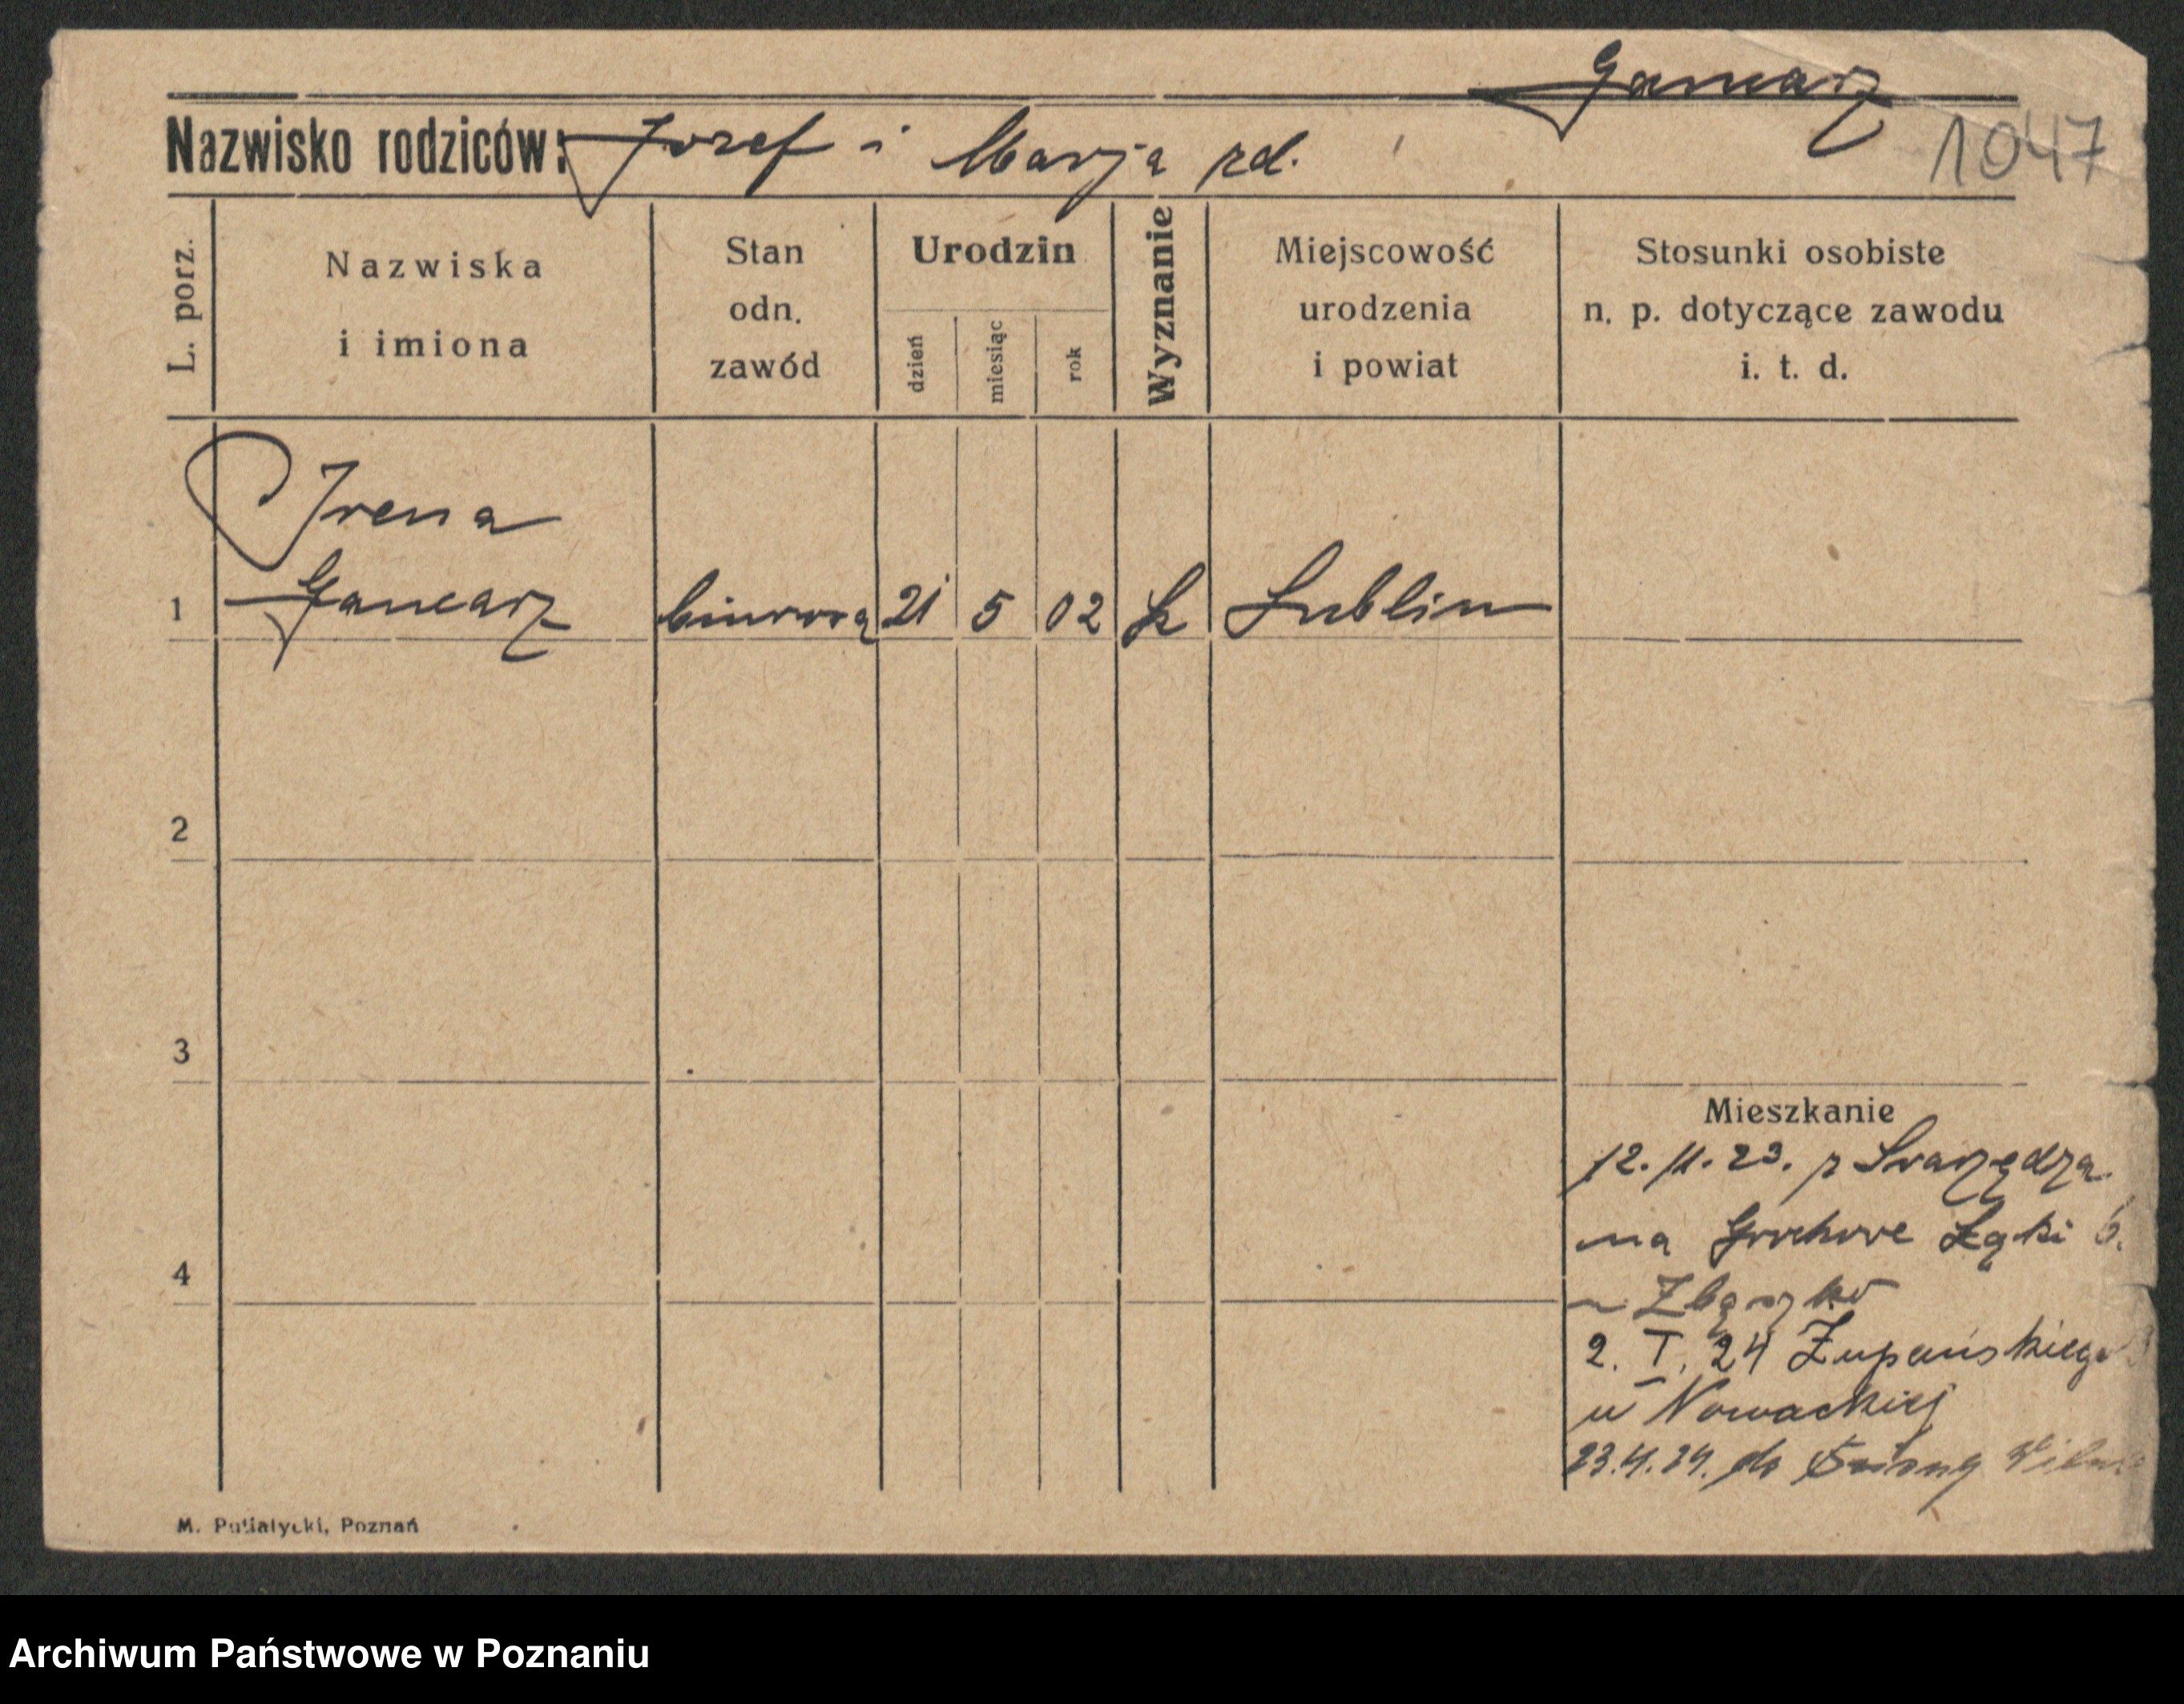 Gancarz
Nazwisko rodziców: Jozef i Marja zd.
1047
L. porz.
Nazwiska
i imiona
Stan
odn.
zawód
Urodzin
dzień
miesiąc
rok
Wyznanie
Miejscowość
urodzenia
i powiat
Stosunki osobiste
n. p. dotyczące zawodu
i. t. d.
Irena
1 Gancarz biurowa 21 5 02 k Lublin
2
3
4
Mieszkanie
12. 11. 23. z Swarzędza
na Grochowe Łąki 6.
2. I. 24 Żupańskiego
u Nowackiej
23.4.24. do
M. Putiatycki, Poznań
Archiwum Państwowe w Poznaniu